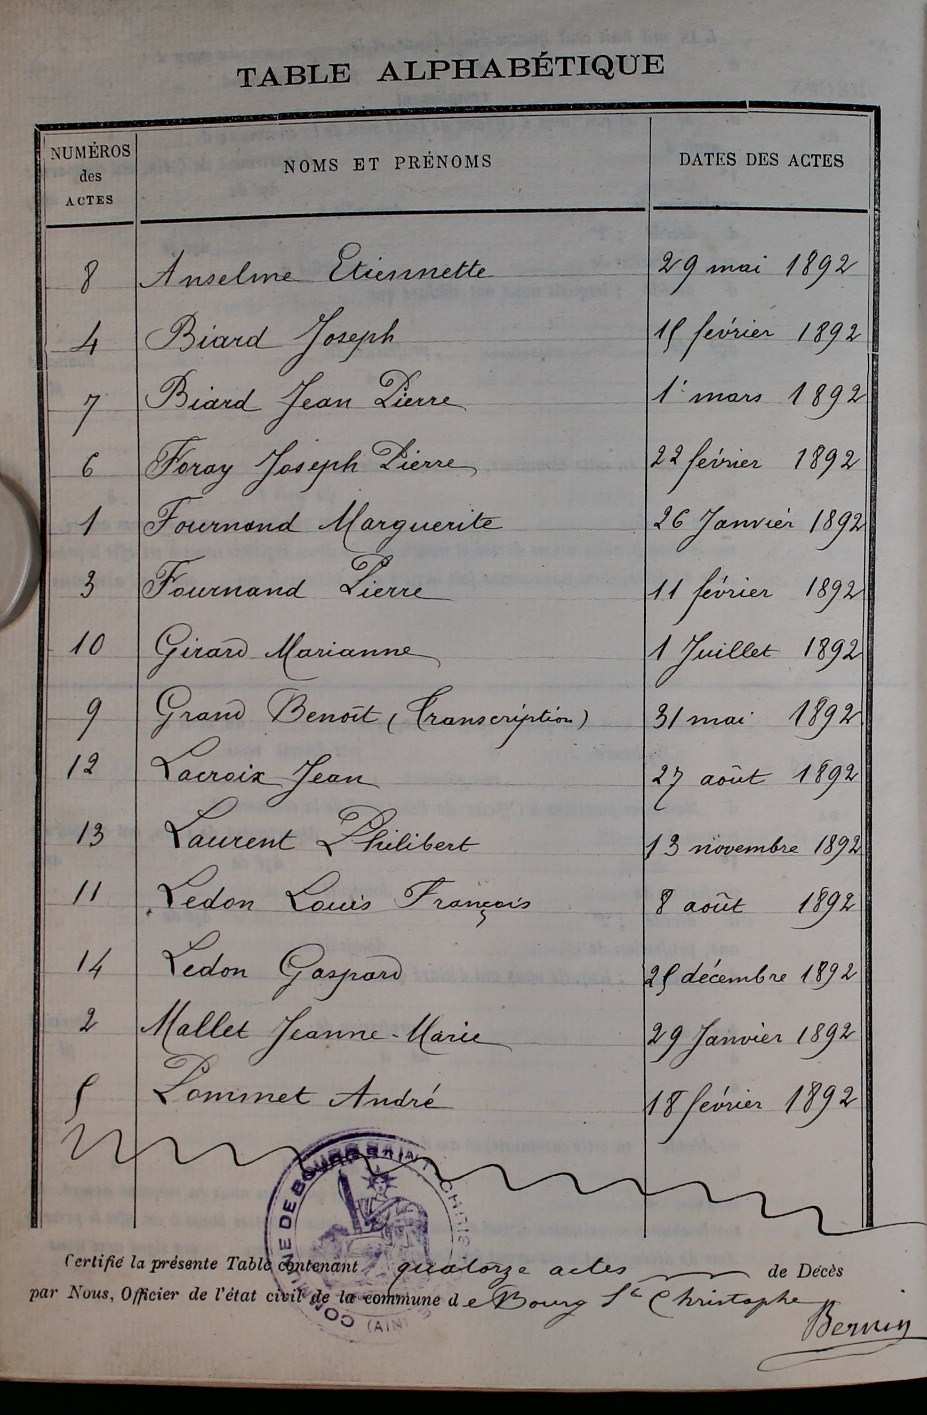 TABLE ALPHABÉTIQUE
NUMÉROS des ACTES NOMS ET PRÉNOMS DATES DES ACTES
8 Anselme Etiennette 29 mai 1892
4 Biard Joseph 15 février 1892
7 Biard Jean Pierre 1r mars 1892
6 Foray Joseph Pierre 22 février 1892
1 Fournand Marguerite 26 Janvier 1892
3 Fournand Pierre 11 février 1892
10 Girard Marianne 1 Juillet 1892
9 Grand Benoît (Transcription) 31 mai 1892
12 Lacroix Jean 27 août 1892
13 Laurent Philibert 13 novembre 1892
11 Ledon Louis François 8 août 1892
14 Ledon Gaspard 25 décembre 1892
2 Mallet Jeanne-Marie 29 Janvier 1892
5 Pommet André 18 février 1892
COMMUNE DE BOURG SAINT CHRIS
(AIN)
Certifié la présente Table contenant quatorze actes de Décès
par Nous, Officier de l'état civil de la commune de Bourg St Christophe
Bernin